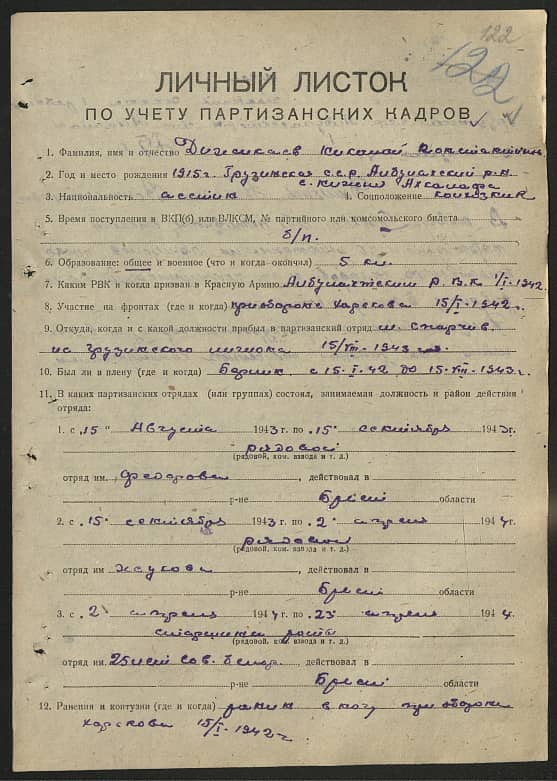 122
122
ЛИЧНЫЙ ЛИСТОК
ПО УЧЕТУ ПАРТИЗАНСКИХ КАДРОВ
1. Фамилия, имя и отчество Николай
2. Год и место рождения 1915 г. Грузинская с.с.р. р-н
с.
3. Национальность 4. Соцположение
5. Время поступления в ВКП(б) или ВЛКСМ, № партийного или комсомольского билета
б/п.
6. Образование: общее и военное (что и когда окончил) 5 кл.
7. Каким РВК и когда призван в Красную Армию Р.В.К. 1/I-1942
8. Участие на фронтах (где и когда) при обороне Харкова 15/I-1942 г.
9. Откуда, когда и с какой должности прибыл в партизанский отряд м.
из грузинского легиона 15/VIII-1943 г.
10. Был ли в плену (где и когда) с 15-I-42 до 15-VIII-1943 г.
11. В каких партизанских отрядах (или группах) состоял, занимаемая должность и район действия
отряда:
1. с „15" Августа 1943 г. по „15" сентября 1943 г.
рядовой
(рядовой, ком. взвода и т. д.)
отряд им. Федорова, действовал в
р-не Брест области
2. с „15" сентября 1943 г. по „2" апреля 1944 г.
рядовой
(рядовой, ком. взвода и т. д.)
отряд им. Жукова, действовал в
р-не Брест области
3. с „2" апреля 1944 г. по „25" апреля 1944 г.
старшина роты
(рядовой, ком. взвода и т. д.)
отряд им. 25 лет Сов. Белор., действовал в
р-не Брест области
12. Ранения и контузии (где и когда) ранен в ногу при обороне
Харкова 15/I-1942 г.